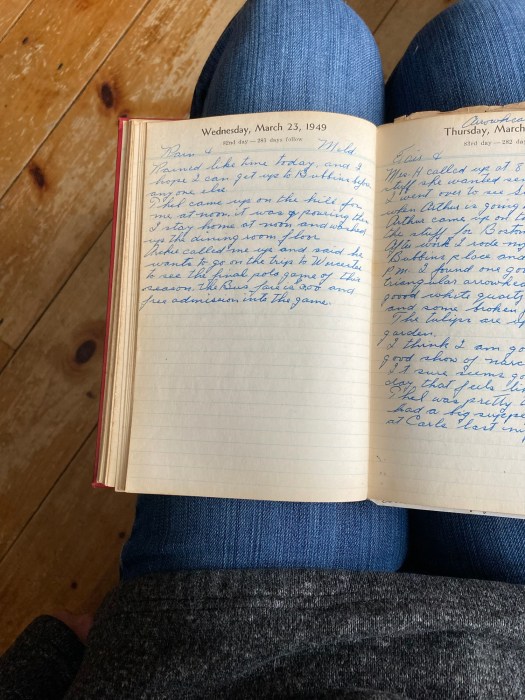 Wednesday, March 23, 1949
82nd day — 283 days follow
Rain & Mild
Rained like time today, and I
hope I can get up to Bubbins before
any one else.
Ethel came up on the hill for
me at noon. it was a pouring then
I stay home at noon and washed
up the dining room floor
Archie called me up and said he
wants to go on the trip to Worcester
to see the final polo game of this
season. The Bus fare is 2.00 and
free admission into the game.
Arrowhea
Thursday, Mar
83rd day — 282 da
&
Mrs. H called up at 8
stuff she wanted
I went over to see S
when Arthur is going
Arthur came up on
the stuff for Boston
After work I rode
Bubbins place and
P.M. I found one
triangular arrowhea
good white quartz
and some broken
The tulips are
garden.
I think I am go
good show of narc
It sure seems go
day that feels li
Ethel was pretty
had a big suppe
at Carls last